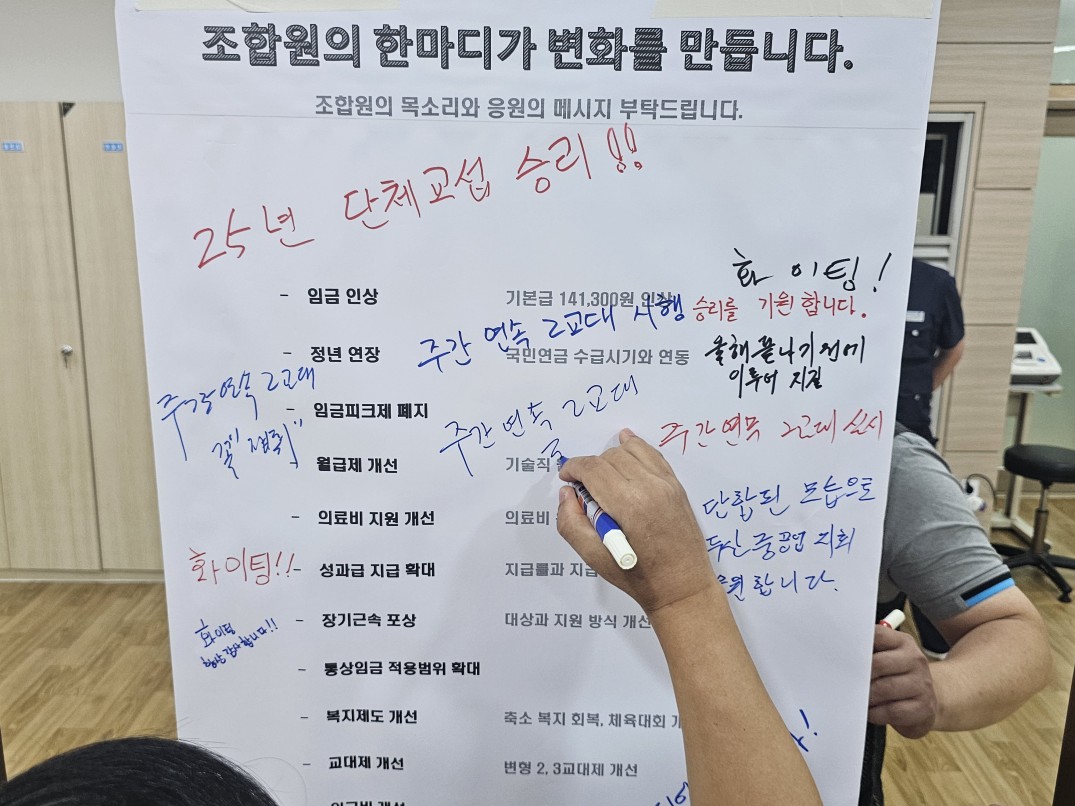 조합원의 한마디가 변화를 만듭니다.
조합원의 목소리와 응원의 메시지 부탁드립니다.
25년 단체교섭 승리!!
화이팅!
- 임금 인상 기본급 141,300원 인상
주간 연속 2교대 시행
승리를 기원합니다.
- 정년 연장 국민연금 수급시기와 연동
올해 끝나기 전에
주간연속 2교대
꼭
- 임금피크제 폐지
주간 연속 2교대
주간연속 2교대 실시
월급제 개선 기술직
단합된 모습으로
- 의료비 지원 개선 의료비
두산중공업 지회
응원합니다.
화이팅!!
- 성과급 지급 확대 지급률과 지급
- 장기근속 포상 대상과 지원 방식 개선
화이팅
항상 감사합니다!!
- 통상임금 적용범위 확대
- 복지제도 개선 축소 복지 회복, 체육대회
- 교대제 개선 변형 2, 3교대제 개선